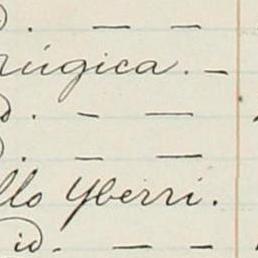 d. — —
rúgica. —
d. — —
d. — —
llo Yberri.
id. — — —